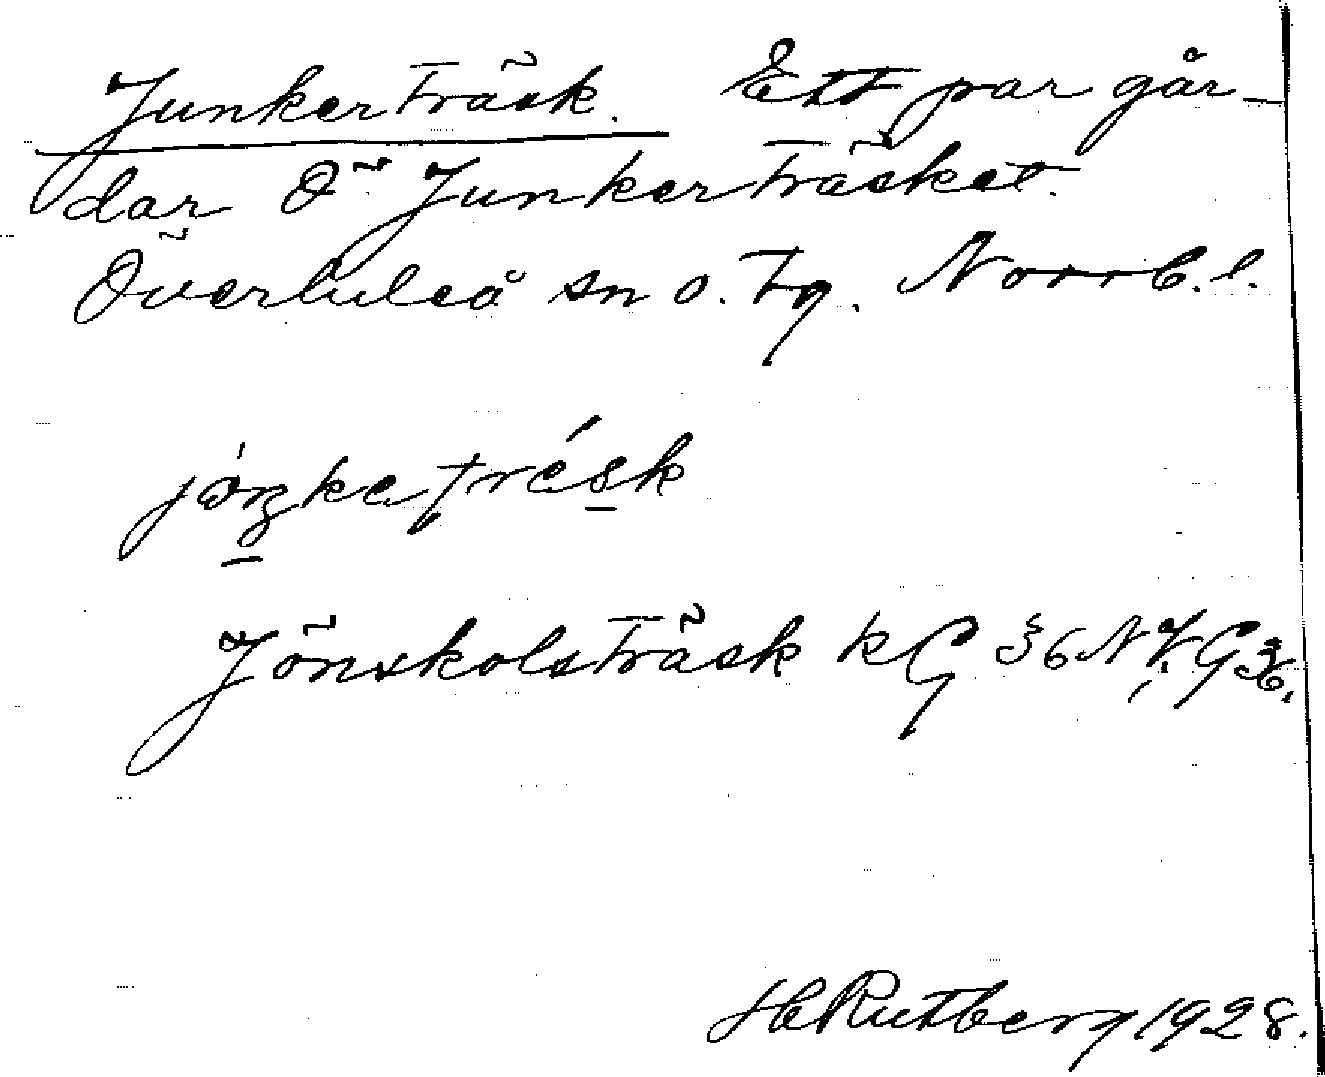 Junkerträsk. Ett par går-
dar Ö Junkerträsket.
Överluleå sn o. tg. Norrb. l.
träsk
Jönskolsträsk kG 36 N
H Rutberg 1928.